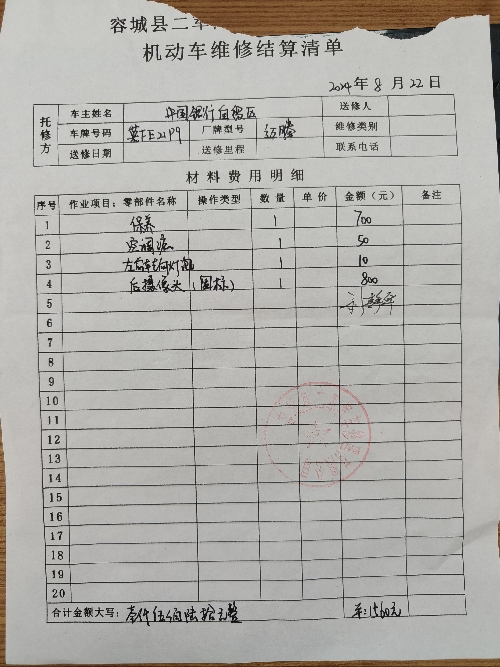 容城县二车
机动车维修结算清单
2024年8月22日
托修方 车主姓名 中国银行自贸区 送修人
车牌号码 冀FE21P9 厂牌型号 迈腾 维修类别
送修日期 送修里程 联系电话
材料费用明细
序号 作业项目:零部件名称 操作类型 数量 单价 金额(元) 备注
1 保养 1 700
2 空调滤 1 50
3 左右转向灯泡 1 10
4 后摄像头(图标) 1 800
5
6
7
8
9
10
11
12
13
14
15
16
17
18
19
20
合计金额大写: 壹仟伍佰陆拾元整 ¥:1560元